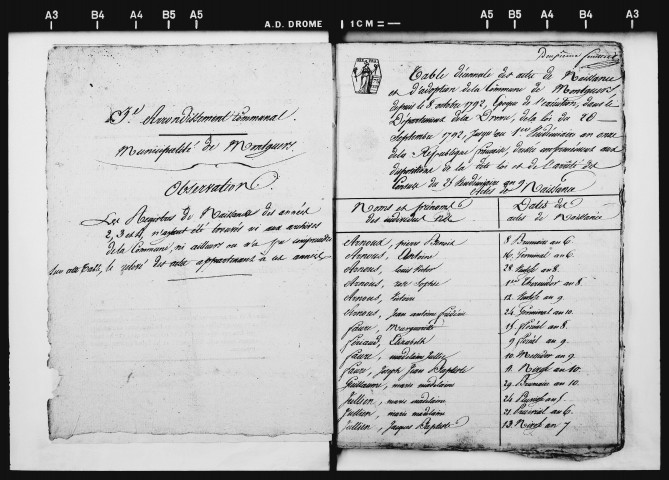 A3 B4 A4 B5 A5 A.D. DROME 1CM = A5 B5 A4 B4 A3
3.e Arrondissement Communal.
Municipalité de Montguers
Observation.
Les Registres de Naissance des années
2, 3 et 4, n'ayant été trouvés ni aux archives
de la Commune, ni ailleurs on n'a pu comprendre
sur cette Table, le relevé des actes appartenant à ces années
Table décennale des actes de Naissance
et d'adoption de la Commune de Montguers
depuis le 8. octobre 1792, époque de l'exécution, dans le
Département de la Drome, de la loi du 20
Septembre 1792, jusqu'au 1.er Vendémiaire an onze
de la République française, dressée conformément aux
dispositions de la dite loi et de l'arrêté des
Consuls du 25 Vendémiaire an 9
Actes de Naissance
Noms et prénoms
des individus nés
Dates des
actes de Naissance
Arnoux, pierre Benoit 8 Brumaire an 6.
Arnoux, Antoine 16. Germinal an 6.
Arnoux, Louis Victor 28 an 8.
Arnoux, rose Sophie 1.er Thermidor an 8.
Arnoux, 12. an 9.
Arnoux, Jean antoine 24. Germinal an 10.
Faure, Marguerite 15 floréal an 8.
Elizabeth 9 floréal an 9.
Faure, madelaine Julie 10. Messidor an 9.
Faure, Joseph Jean Baptiste 11. Nivose an 10.
Guillaume, marie madelaine 29. Brumaire an 10.
Jullien, marie madelaine 24 an 5.
Jullien, marie madelaine 21. Prairial an 6.
Jullien, Jacques Baptiste 13. Nivose an 7